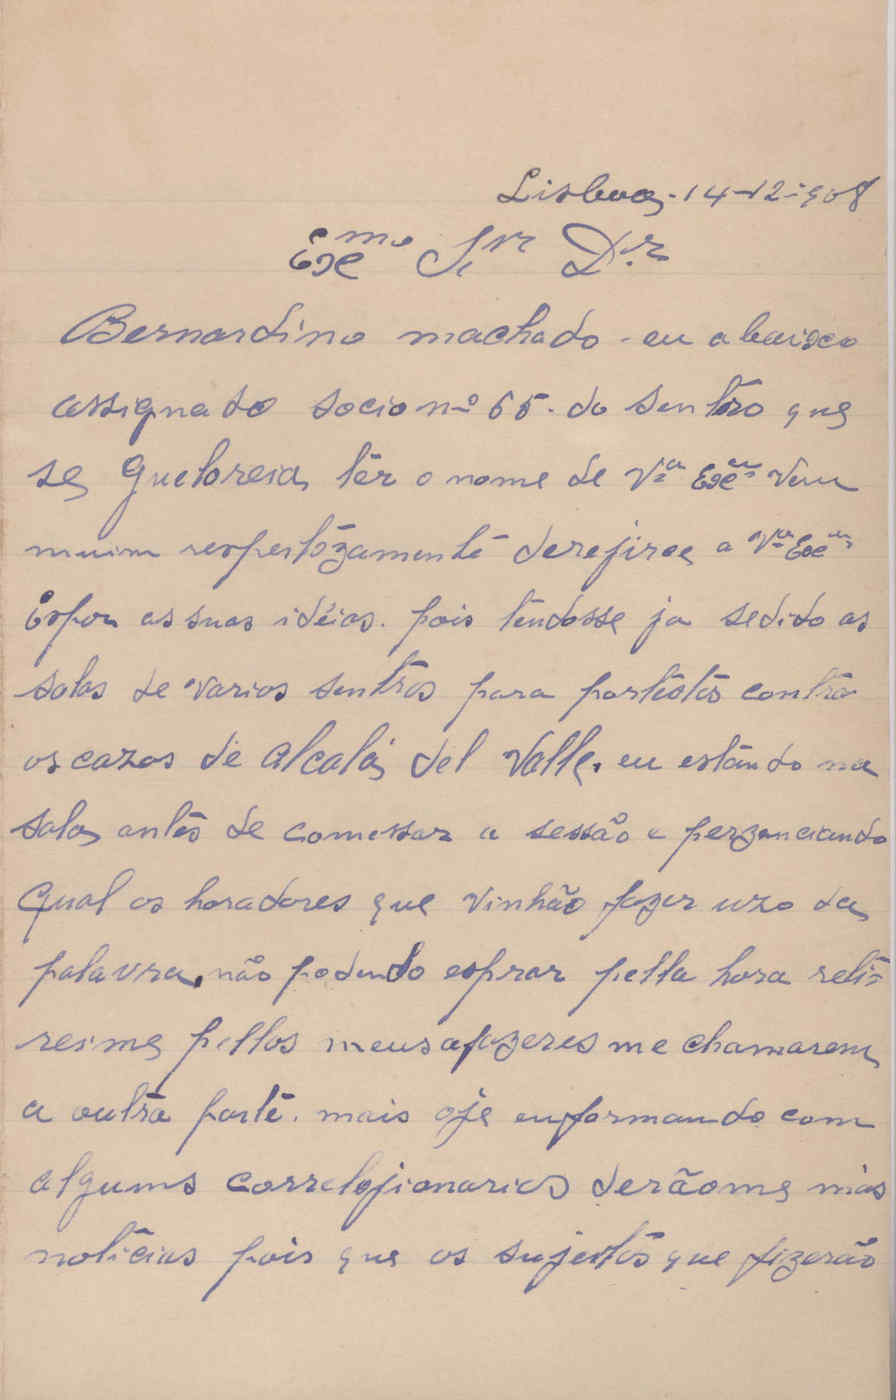 Lisboa-14-12-908
Exmo Snr Dr
Bernardino machado - eu abaixo
assignado socio nº 65. do sentro que
se gueloreia têr o nome de Vª Exª vem
muim respeitozamente derejirce a Vª Exª
Expor as suas idéias. pois tendosse ja sedido as
salas de varios sentros para portestos contra
os cazos de Alcalá del Valle. eu estando na
sala antes de comessar a sessão e perzenciando
qual os horadores que vinhão fazer uzo da
palavra, não podendo esprar pella hora reti=
reime pellos meus afazeres me chamarem
a outra parte. mais oje enformando com
alguns correlojionarios derãome más
noticias pois que os sujeitos que fizerão